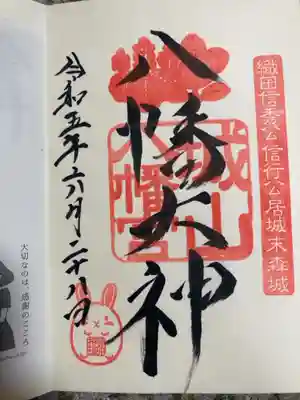 織田信秀公信行公居城末森城
八幡大神
城山八幡宮
令和五年六月二十八日
大切なのは、感謝のこころ